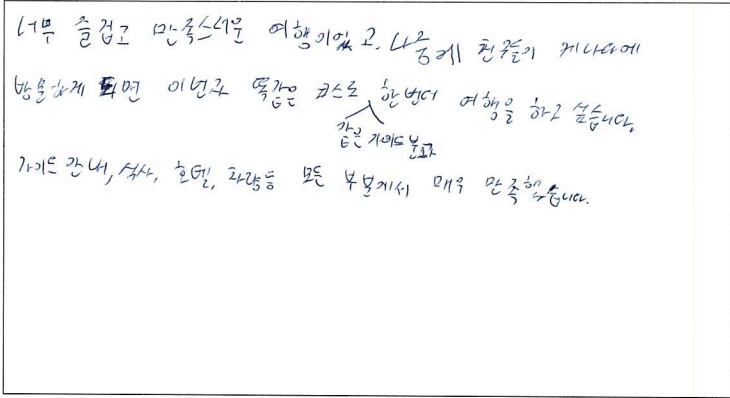 너무 즐겁고 만족스러운 여행이였고, 나중에 친구들이 케나다에
방문하게 되면 이번과 똑같은 코스로 한번더 여행을 하고 싶습니다.
같은 가이드분과
가이드 안내, 식사, 호텔, 차량등 모든 부분에서 매우 만족했습니다.